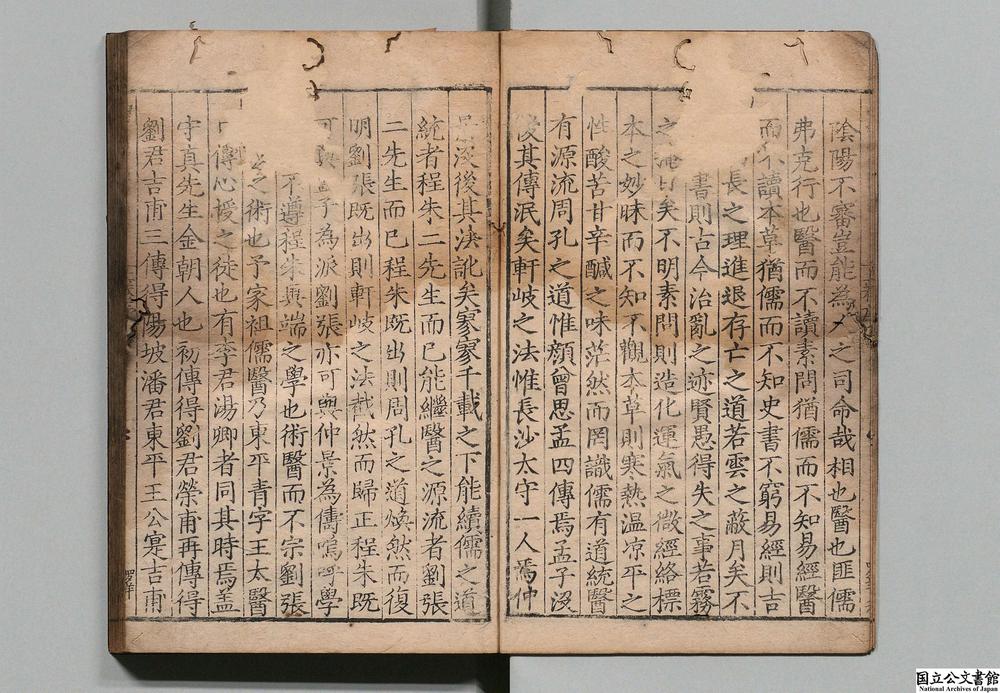 陰陽不審豈能為人之司命哉相也醫也匪儒
弗克行也醫而不讀素問猶儒而不知易經醫
而不讀本草猶儒而不知史書不窮易經則吉
長之理進退存亡之道若雲之蔽月矣不
書則占今治亂之迹賢愚得失之事若霧
之 矣不明素問則造化運氣之微經絡標
本之妙昧而不知不觀本草則寒熱温凉平之
性酸苦甘辛鹹之味茫然而罔識儒有道統醫
有源流周孔之道惟顔曾思孟四傳焉孟子没
後其傳泯矣軒岐之法惟長沙太守一人焉仲
景没後其法訛矣寥寥千載之下能續儒之道
統者程朱二先生而已能繼醫之源流者劉張
二先生而已程朱既出則周孔之道煥然而復
明劉張既出則軒岐之法截然而歸正程朱既
可與孟子為派劉張亦可與仲景為儔嗚呼學
不遵程朱異端之學也術醫而不宗劉張
之術也予家祖儒醫乃東平青字王太醫
傳心授之徒也有李君湯卿者同其時焉盖
守真先生金朝人也初傳得劉君榮甫再傳得
劉君吉甫三傳得陽坡潘君東平王公寔吉甫
国立公文書館
National Archives of Japan